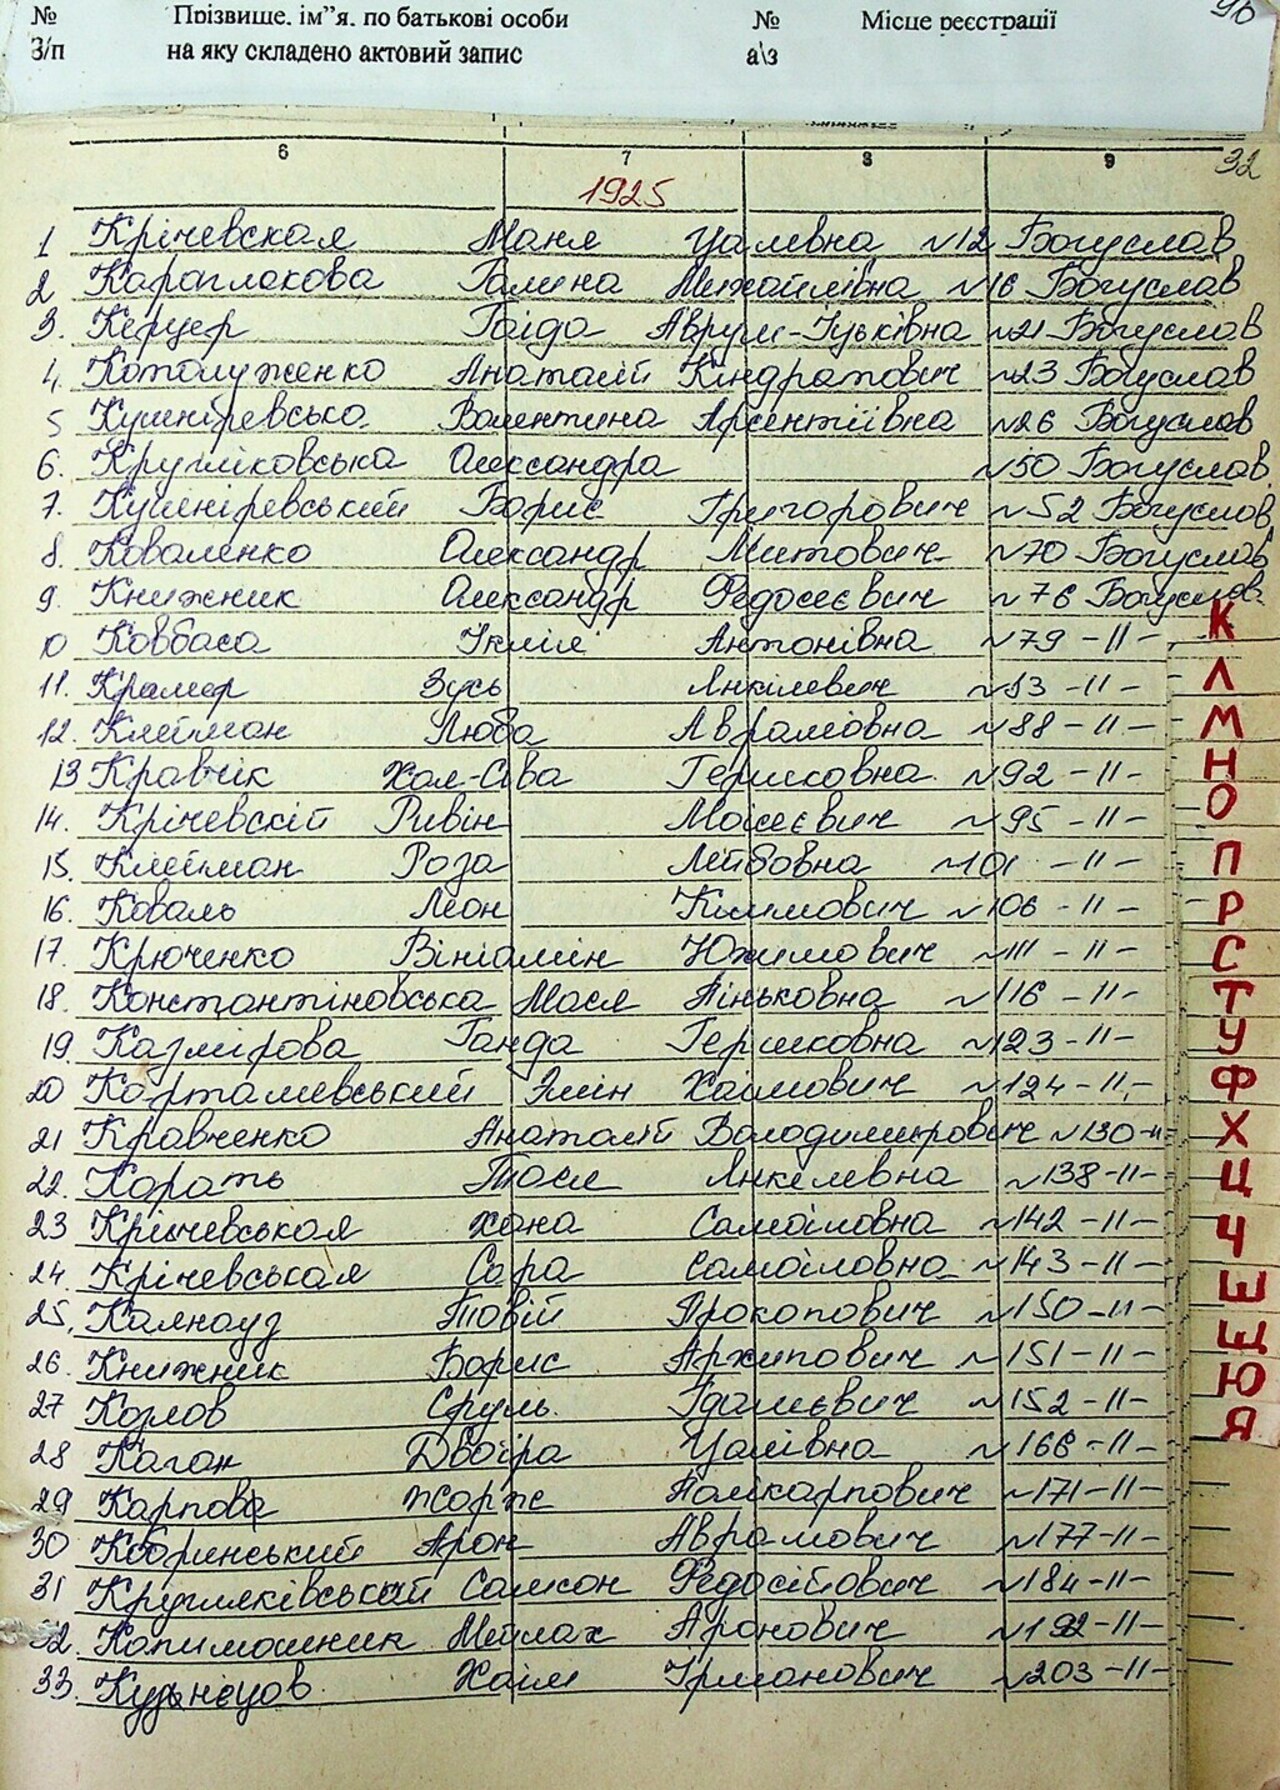 № Прізвище, ім”я, по батькові особи № Місце реєстрації 96
З/п на яку складено актовий запис а\з
6 7 8 9 32
1925
1 Крічевская Маня Уалевна №12 Богуслав
2 Караглакова Галина Михайлівна №16 Богуслав
3. Керцер Гаіда Аврум-Іуьківна №21 Богуслав
4. Котолуженко Анатолій Кіндратович №23 Богуслав
5 Кушніревсько Валентина Арсентіївна №26 Богуслав
6. Кругліковська Олександра №50 Богуслав
7. Кушніревський Борис Григорович №52 Богуслав
8. Коваленко Олександр Митович №70 Богуслав
9. Книжник Олександр Федосеєвич №76 Богуслав
10 Ковбаса Ікмія Антонівна №79 -11-
11. Крамер Зусь Янкілевич №83 -11-
12. Клейман Люба Аврамовна №88 -11-
13 Кравчік Хая-Сіва Гершковна №92 -11-
14. Крічевскій Ривін Моісеєвич №95 -11-
15. Клейман Роза Лейбовна №101 -11-
16. Коваль Леон Климович №106 -11-
17. Крюченко Вініамін Юхимович №111 -11-
18. Константіновська Мася Піньковна №116 -11-
19. Казмірова Ганда Гершковна №123 -11-
20 Карталевський Эмін Хаімович №124 -11-
21 Кравченко Анатолій Володимирович №130 -11-
22. Корать Тося Янкелевна №138 -11-
23 Крічевськая Хана Самоіловна №142 -11-
24. Крічевськая Сора Самоіловна №143 -11-
25. Калнауз Товій Прокопович №150 -11-
26. Книжник Борис Архипович №151 -11-
27 Козлов Сруль Гдальєвич №152 -11-
28 Каган Двойра Уалівна №166 -11-
29 Карпова Жорж Полікарпович №171 -11-
30 Кобринський Арон Аврамович №177 -11-
31 Кругляківський Самсон Федосійович №184 -11-
32. Копимошник Мейлах Аронович №192 -11-
33. Кузьнєцов Хаім Ірманович №203 -11-
К
Л
М
Н
О
П
Р
С
Т
У
Ф
Х
Ц
Ч
Ш
Щ
Ю
Я